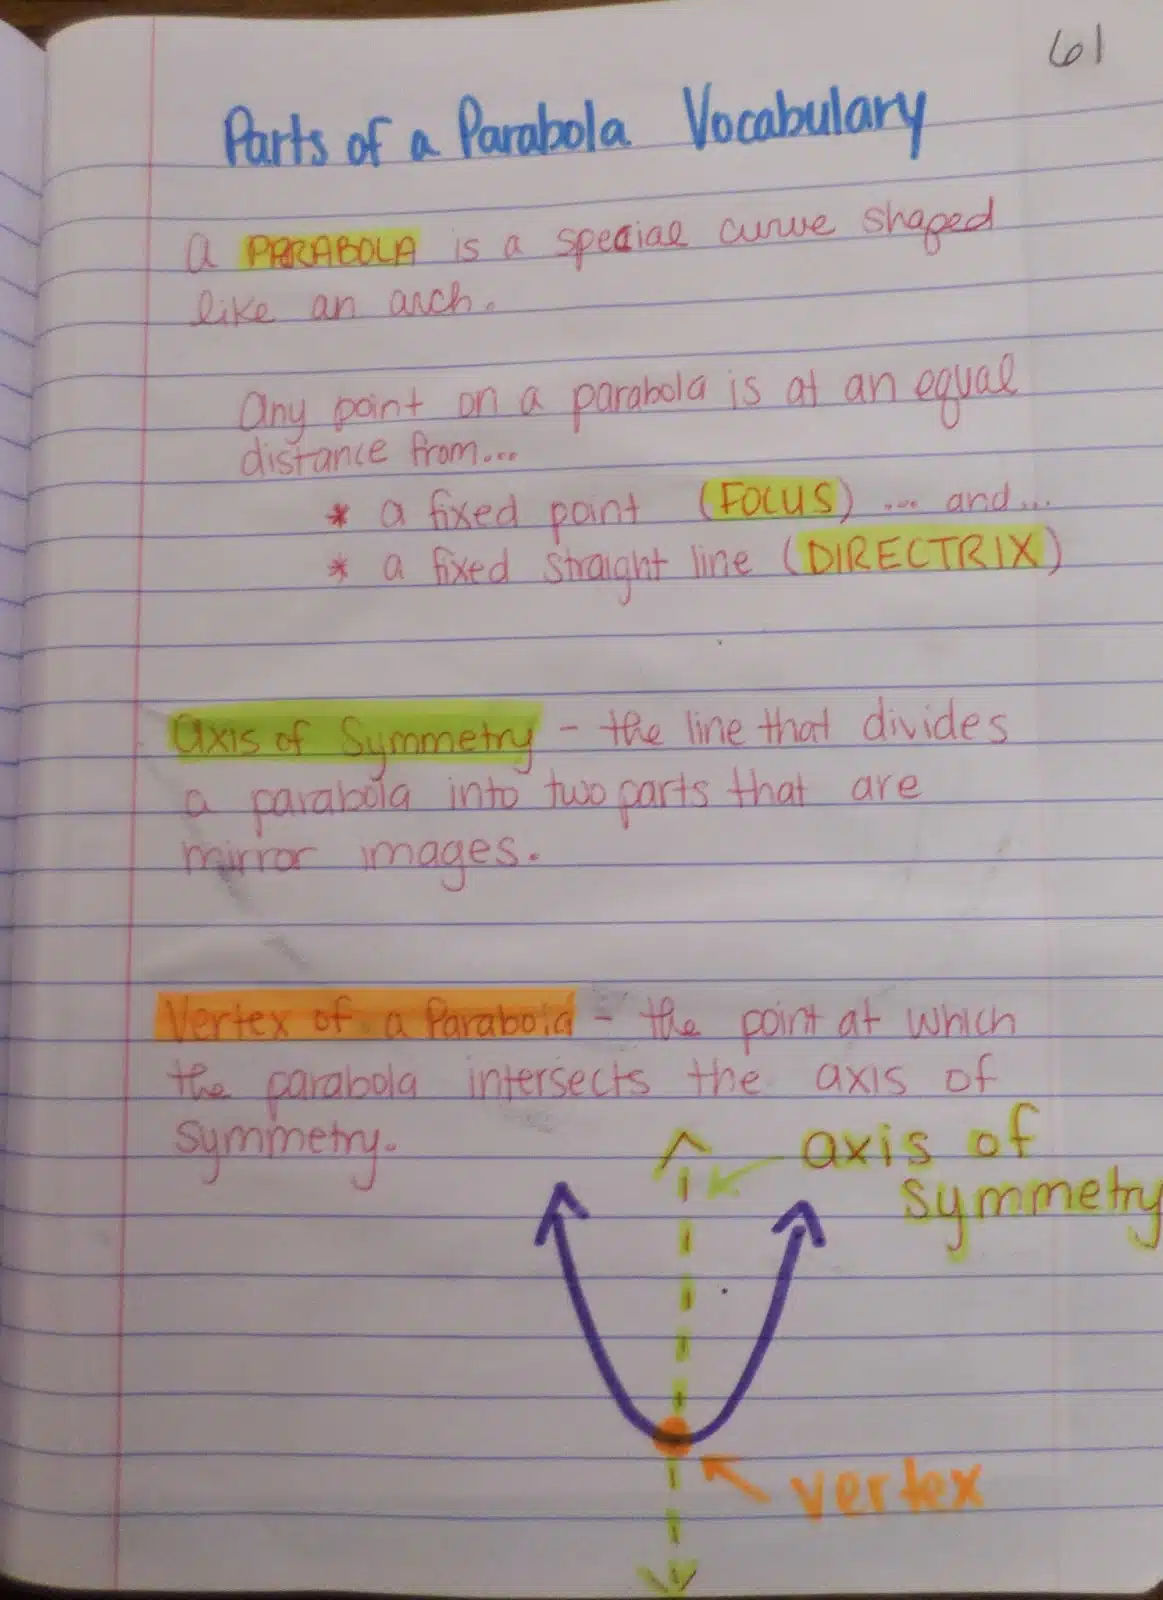 61
Parts of a Parabola Vocabulary
a PARABOLA is a special curve shaped
like an arch.
any point on a parabola is at an equal
distance from...
* a fixed point (FOCUS) ... and...
* a fixed straight line (DIRECTRIX)
axis of Symmetry - the line that divides
a parabola into two parts that are
mirror images.
Vertex of a Parabola - the point at which
the parabola intersects the axis of
symmetry.
axis of
symmetry
vertex